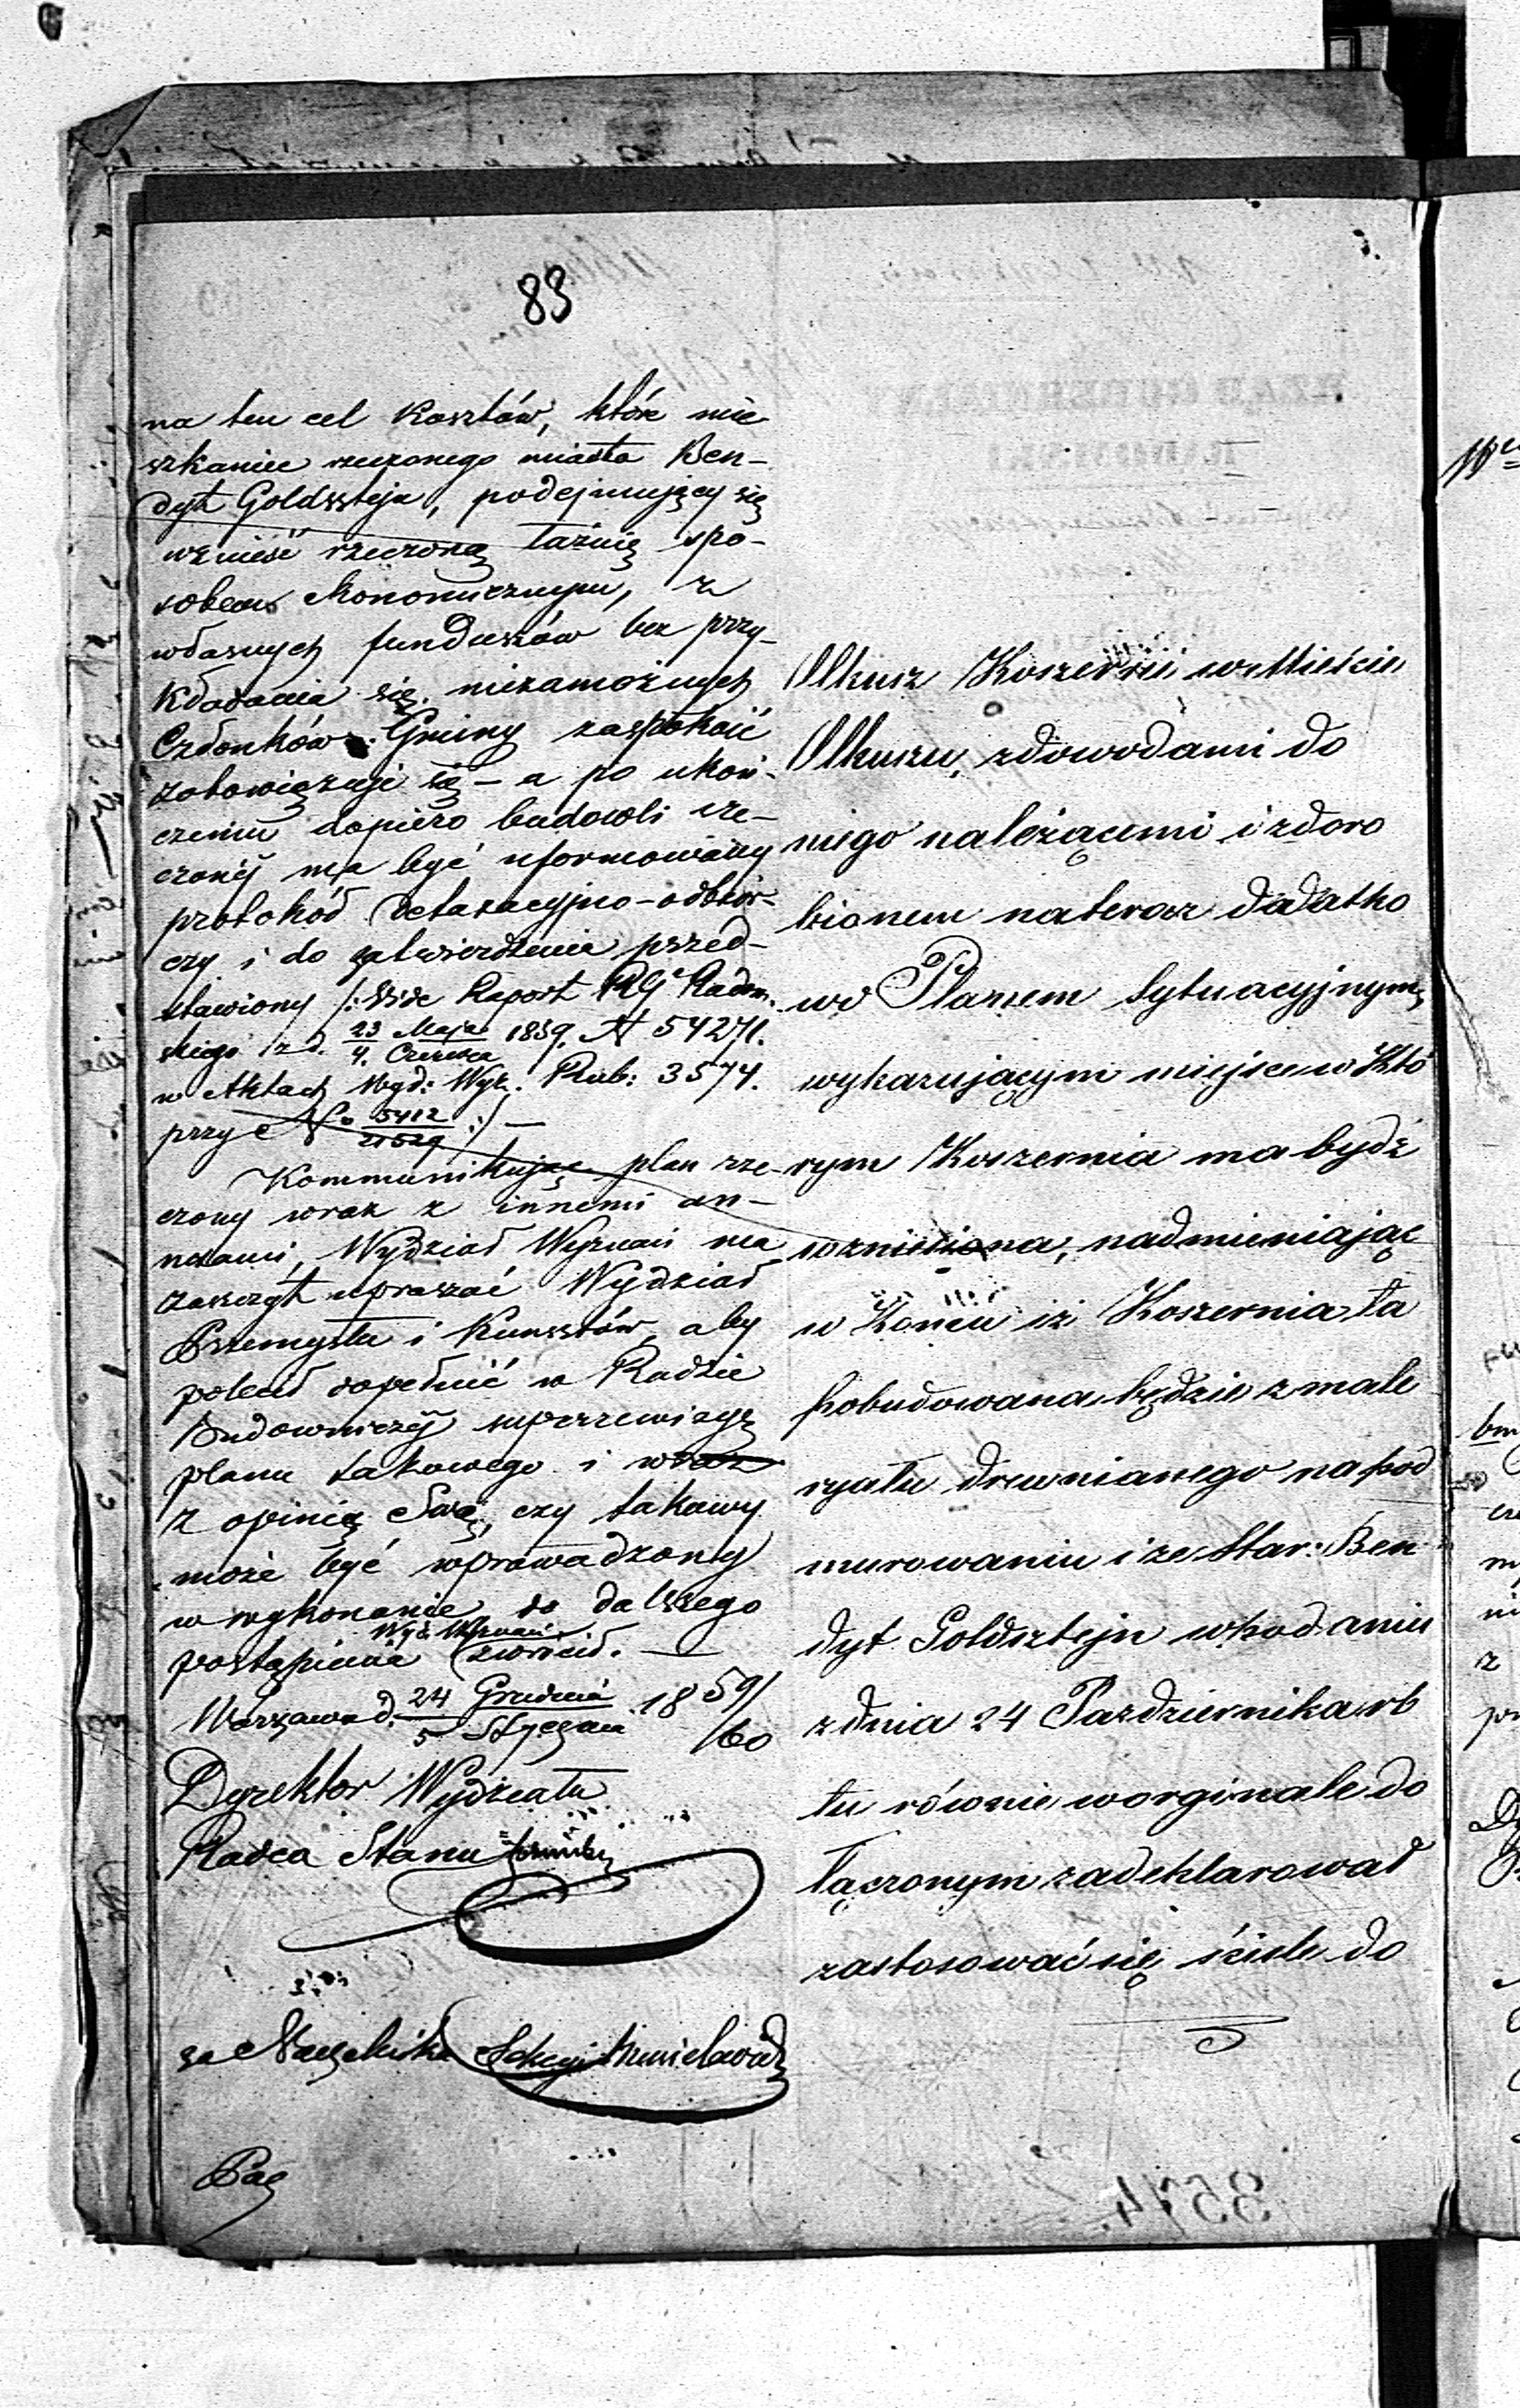 83
na ten cel kosztów, które mie
szkaniec rzeczonego miasta Ben-
dyt Goldsztejn, podejmujący się
wznieść rzeczoną łaźnię spo-
sobem ekonomicznym, z
własnych funduszów bez przy-
kładania się niezamożnych
Członków Gminy zaspokoić
zobowiązuje się – a po ukoń-
czeniu dopiero budowli rze-
czonéj ma być uformowany
protokół detaxacyjno-odbior-
czy i do zatwierdzenia przed-
stawiony /: Vide Raport RGo Radom-
skiego z d. 23 Maja / 4 Czerwca 1859. N 54271.
w Aktach Wyd: Wyz. Rub: 3574.
przy No 5412 / 21529 :/ —
Kommunikując plan rze-
czony wraz z innemi an-
nexami, Wydział Wyznań ma
zaszczyt upraszać Wydział
Przemysłu i Kunsztów, aby
polecił dopełnić w Radzie
Budowniczéj superrewizyę
planu takowego i wraz
z opinią Swą, czy takowy
może być wprowadzony
w wykonanie, do dalszego
postąpienia Wyd. Wyznań zwrócił. —
Warszawa d. 24 Grudnia / 5 Stycznia 1859/60
Dyrektor Wydziału
Radca Stanu
za Naczelnika Sekcyi
Olkusz Koszerni w Mieście
Olkuszu, z dowodami do
niego należącemi i zdoro
bionem na teraz dodatko
wo Planem Sytuacyjnym,
wykazującym miejsce w któ
rym Koszernia ma bydź
wzniesiona, nadmieniając
w Końcu iż Koszernia ta
pobudowana będzie z mate
ryału drewnianego na pod
murowaniu i że Star: Ben
dyt Goldsztejn w podaniu
z dnia 24 Pazdziernika rb
tu równie w orginale do
łączonym zadeklarował
zastosować się ściśle do
3574